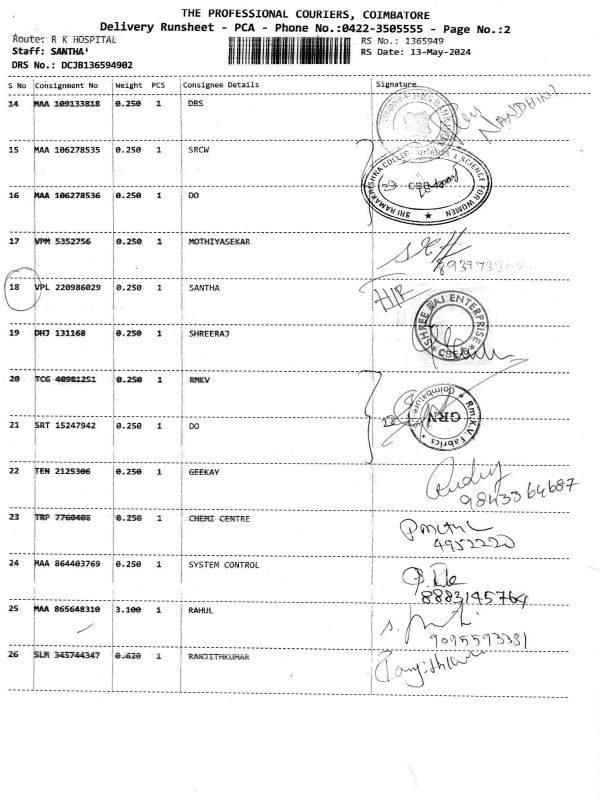 THE PROFESSIONAL COURIERS, COIMBATORE
Delivery Runsheet - PCA - Phone No.:0422-3505555 - Page No.:2
Route: R K HOSPITAL RS No.: 1365949
Staff: SANTHA' RS Date: 13-May-2024
DRS No.: DCJB136594902
S No Consignment No Weight PCS Consignee Details Signature
14 MAA 109133818 0.250 1 DBS
NANDHINI
15 MAA 106278535 0.250 1 SRCW
SRI RAMAKRISHNA COLLEGE OF ARTS & SCIENCE FOR WOMEN
CBE
16 MAA 106278536 0.250 1 DO
17 VPM 5352756 0.250 1 MOTHIYASEKAR
18 VPL 220986029 0.250 1 SANTHA
SHREE RAJ ENTERPRISE
19 DHJ 131168 0.250 1 SHREERAJ
20 TCG 40981251 0.250 1 RMKV
Rm.K.V. Fabrics
Coimbatore
GRN
21 SRT 15247942 0.250 1 DO
22 TEN 2125306 0.250 1 GEEKAY
9843364687
23 TRP 7760408 0.250 1 CHEMI CENTRE
4952220
24 MAA 864403769 0.250 1 SYSTEM CONTROL
8883145764
25 MAA 865648310 3.100 1 RAHUL
9095593331
26 SLM 345744347 0.620 1 RANJITHKUMAR
Ranjithkumar